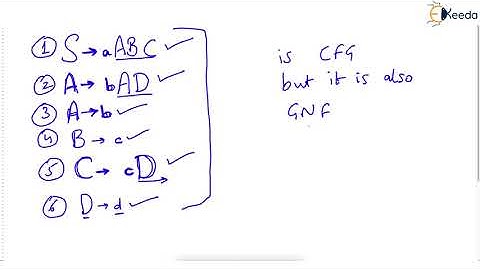 Keeda
① S → aABC ✓
② A → bAD ✓
③ A → b ✓
④ B → c ✓
⑤ C → cD ✓
⑥ D → d ✓
is CFG
but it is also
GNF